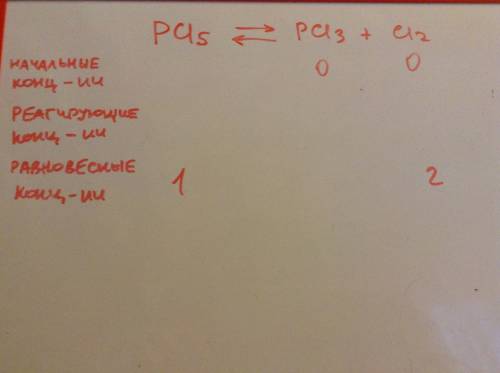 PCl5 ⇄ PCl3 + Cl2
НАЧАЛЬНЫЕ 0 0
КОНЦ-ИИ
РЕАГИРУЮЩИЕ
КОНЦ-ИИ
РАВНОВЕСНЫЕ 1 2
КОНЦ-ИИ